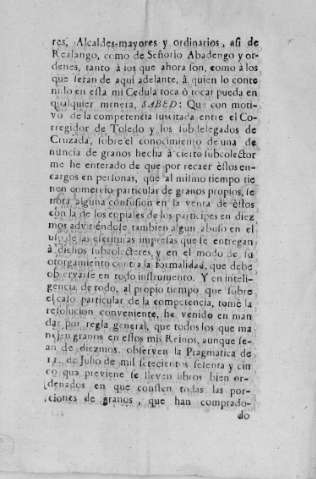 res, Alcaldes-mayores y ordinarios, asi de
Realengo, como de Señorio Abadengo y or-
denes, tanto à los que ahora son, como à los
que seran de aqui adelante, à quien lo conte
nido en esta mi Cedula toca ò tocar pueda en
qualquier manera, SABED: Que con moti-
vo de la competencia suscitada entre el Co-
rregidor de Toledo y los subdelegados de
Cruzada, sobre el conocimiento de una de
nuncia de granos hecha à cierto subcolector
me he enterado de que por recaer èstos en-
cargos en personas, que al mismo tiempo tie
nen comercio particular de granos propios, se
nota alguna confusion en la venta de èstos
con la de los copiales de los participes en diez
mos advirtiendose tambien algun abuso en el
uso de las escrituras impresas que se entregan
à dichos subcolectores, y en el modo de su
otorgamiento contra la formalidad, que debe
observarse en todo instrumento. Y en inteli-
gencia de todo, al propio tiempo que sobre
el caso particular de la competencia, tomè la
resolucion conveniente, he venido en man
dar por regla general, que todos los que ma
nejen granos en estos mis Reinos, aunque se-
an de diezmos, observen la Pragmatica de
de Julio de mil setecientos sesenta y cin
co que previene se lleven libros bien or-
denados en que consten todas las por-
ciones de granos, que han comprado-
do